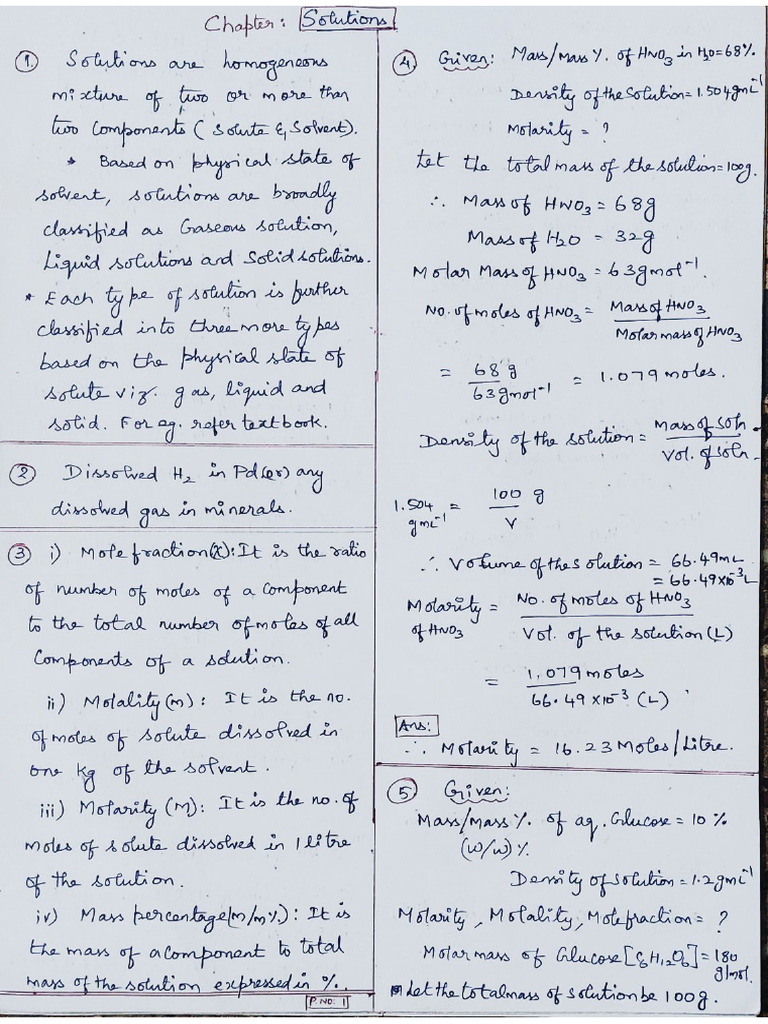 Chapter: Solutions
① Solutions are homogeneous
mixture of two or more than
two components ( Solute & Solvent).
* Based on physical state of
solvent, solutions are broadly
classified as Gaseous solution,
Liquid solutions and Solid solutions.
* Each type of solution is further
classified into three more types
based on the physical state of
solute viz. gas, liquid and
solid. For eg. refer textbook.
② Dissolved H₂ in Pd (or) any
dissolved gas in minerals.
③ i) Mole fraction(x): It is the ratio
of number of moles of a component
to the total number of moles of all
components of a solution.
ii) Molality (m) : It is the no.
of moles of solute dissolved in
one kg of the solvent.
iii) Molarity (M): It is the no. of
moles of solute dissolved in 1 litre
of the solution.
iv) Mass percentage(m/m%): It is
the mass of a component to total
mass of the solution expressed in %.
P.NO: 1
④ Given: Mass/mass %. of HNO₃ in H₂O = 68%.
Density of the solution = 1.504 g mL⁻¹
Molarity = ?
Let the total mass of the solution = 100g.
∴ Mass of HNO₃ = 68g
Mass of H₂O = 32g
Molar Mass of HNO₃ = 63 g mol⁻¹.
No. of moles of HNO₃ = Mass of HNO₃
Molar mass of HNO₃
= 68 g / 63 g mol⁻¹ = 1.079 moles.
Density of the solution = Mass of soln.
Vol. of soln.
1.504 g mL⁻¹ = 100 g / V
∴ Volume of the solution = 66.49 mL
= 66.49 × 10⁻³ L
Molarity of HNO₃ = No. of moles of HNO₃
Vol. of the solution (L)
= 1.079 moles
66.49 × 10⁻³ (L)
Ans:
∴ Molarity = 16.23 Moles/Litre.
⑤ Given:
Mass/mass %. of aq. Glucose = 10 %
(w/w) %
Density of solution = 1.2 g mL⁻¹
Molarity, Molality, Mole fraction = ?
Molar mass of Glucose [C₆H₁₂O₆] = 180 g/mol.
Let the total mass of solution be 100g.